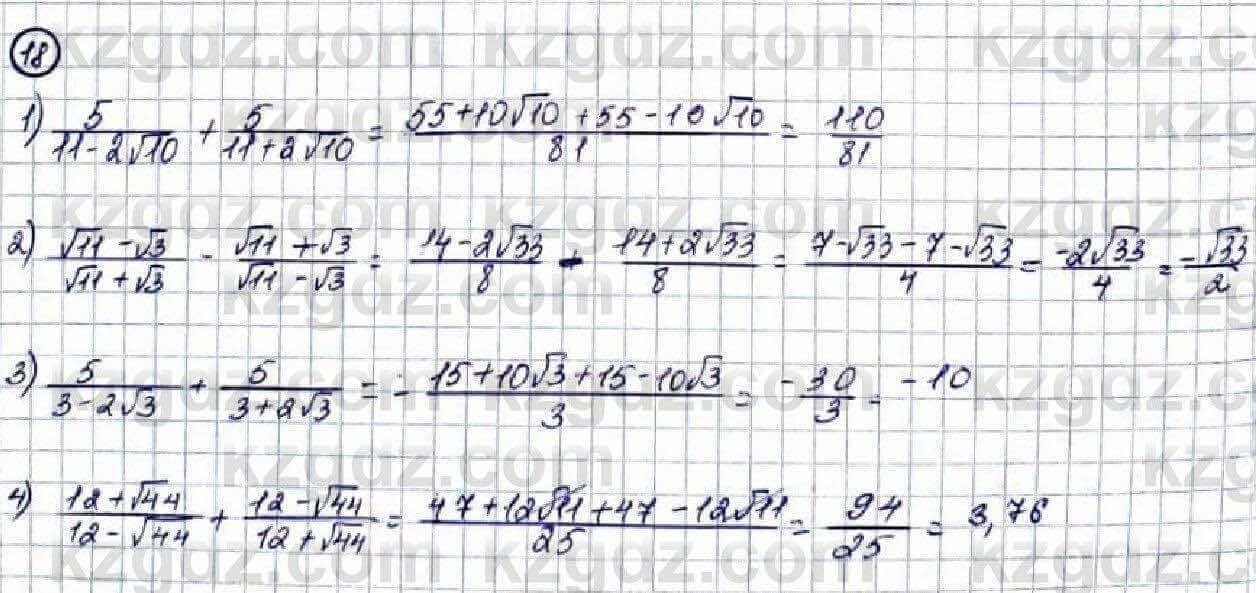 18
1) 5/(11-2√10) + 5/(11+2√10) = (55+10√10+55-10√10)/81 = 110/81
2) (√11-√3)/(√11+√3) - (√11+√3)/(√11-√3) = (14-2√33)/8 - (14+2√33)/8 = (7-√33-7-√33)/4 = -2√33/4 = -√33/2
3) 5/(3-2√3) + 5/(3+2√3) = - (15+10√3+15-10√3)/3 = -30/3 = -10
4) (12+√44)/(12-√44) + (12-√44)/(12+√44) = (47+12√11+47-12√11)/25 = 94/25 = 3,76
kzgdz.com kzgdz.com kzgdz.com